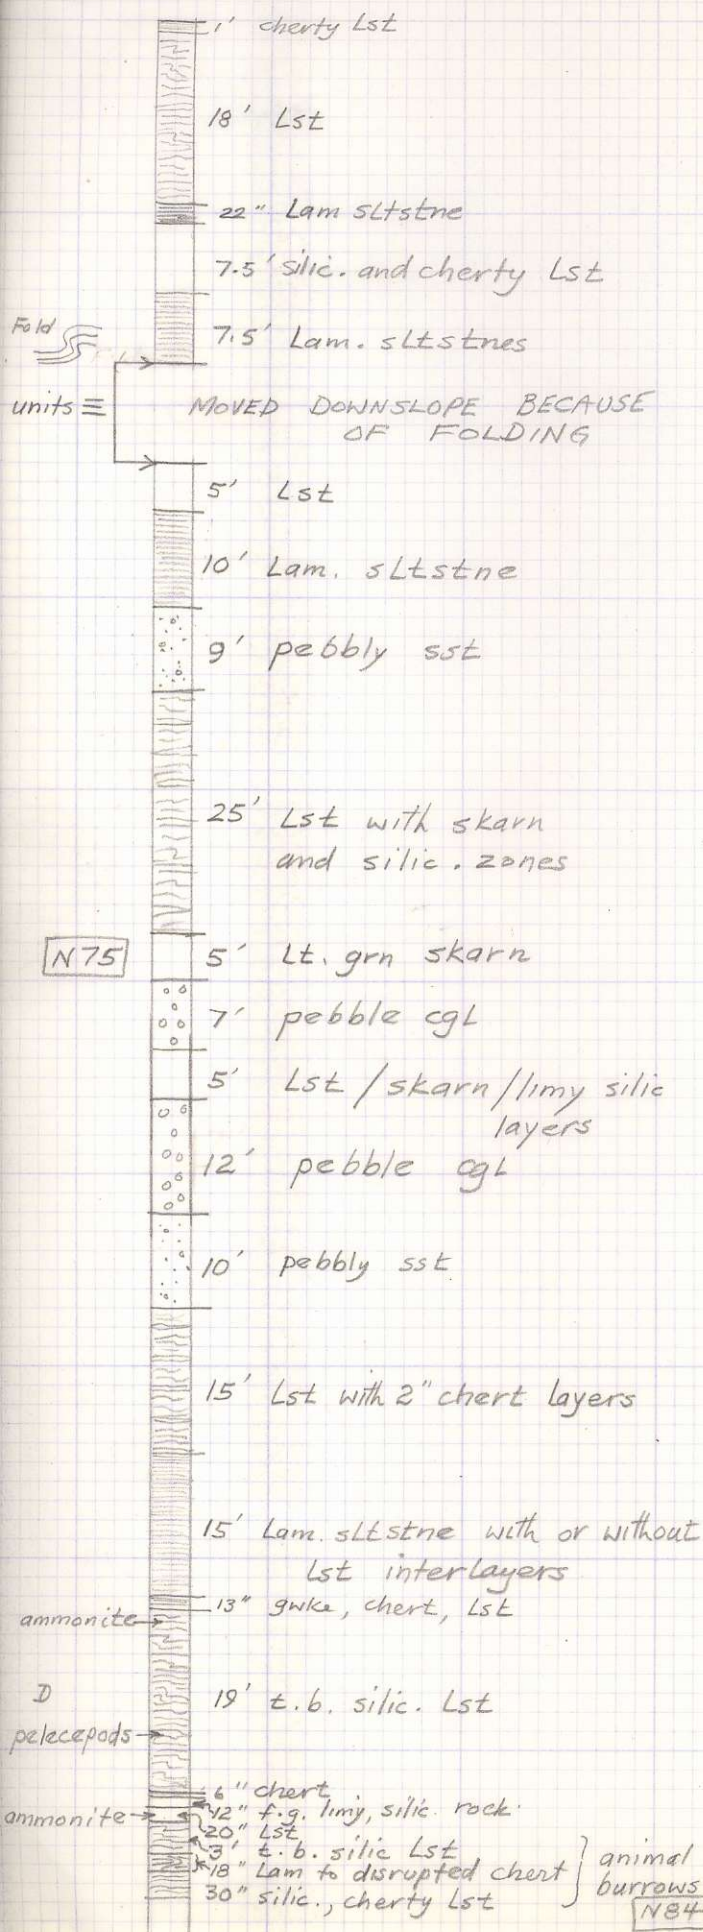 1' cherty Lst
18' Lst
22" Lam sltstne
7.5' silic. and cherty Lst
Fold
7.5' Lam. sltstnes
units ≡
MOVED DOWNSLOPE BECAUSE
OF FOLDING
5' Lst
10' Lam. sltstne
9' pebbly sst
25' Lst with skarn
and silic. zones
N75
5' Lt. grn skarn
7' pebble cgl
5' Lst / skarn / limy silic
layers
12' pebble cgl
10' pebbly sst
15' Lst with 2" chert layers
15' Lam. sltstne with or without
Lst interlayers
13" gwke, chert, Lst
ammonite
D
19' t.b. silic. Lst
pelecepods
6" chert
ammonite
12" f.g. limy, silic. rock
20" Lst
3' t.b. silic Lst
18" Lam to disrupted chert
30" silic., cherty Lst
animal
burrows
N84